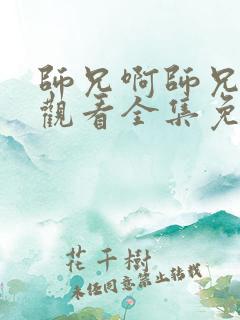 師兄啊師兄
觀看全集免
花千樹
未經同意禁止轉載